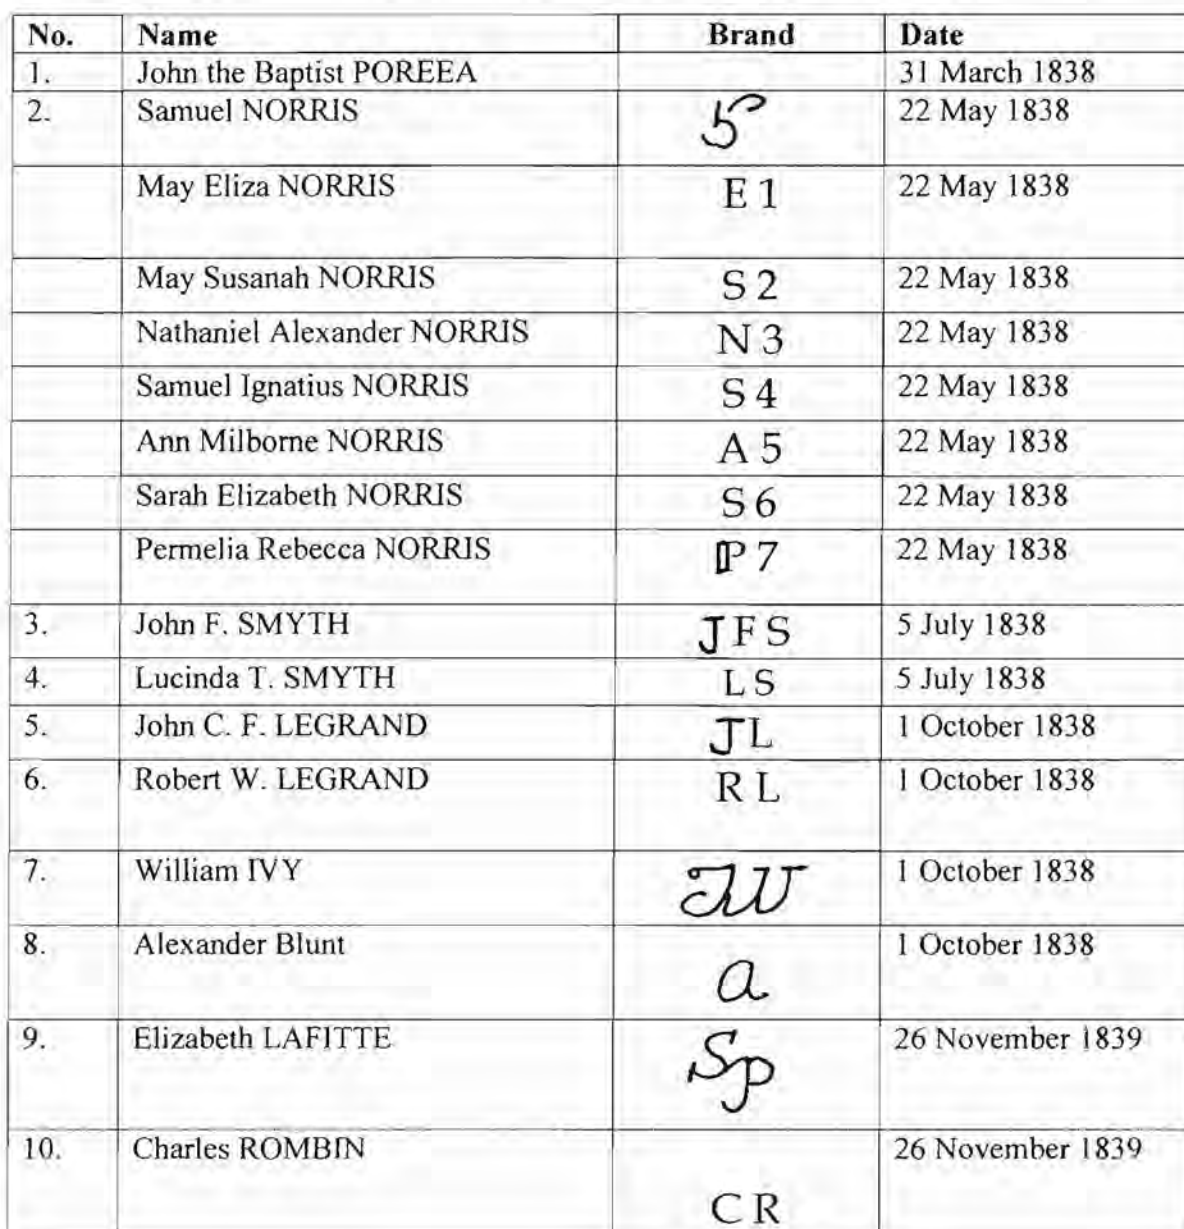 No. Name Brand Date
1. John the Baptist POREEA 31 March 1838
2. Samuel NORRIS 5 22 May 1838
May Eliza NORRIS E 1 22 May 1838
May Susanah NORRIS S 2 22 May 1838
Nathaniel Alexander NORRIS N 3 22 May 1838
Samuel Ignatius NORRIS S 4 22 May 1838
Ann Milborne NORRIS A 5 22 May 1838
Sarah Elizabeth NORRIS S 6 22 May 1838
Permelia Rebecca NORRIS P 7 22 May 1838
3. John F. SMYTH J F S 5 July 1838
4. Lucinda T. SMYTH L S 5 July 1838
5. John C. F. LEGRAND J L 1 October 1838
6. Robert W. LEGRAND R L 1 October 1838
7. William IVY 1 October 1838
8. Alexander Blunt a 1 October 1838
9. Elizabeth LAFITTE Sp 26 November 1839
10. Charles ROMBIN C R 26 November 1839